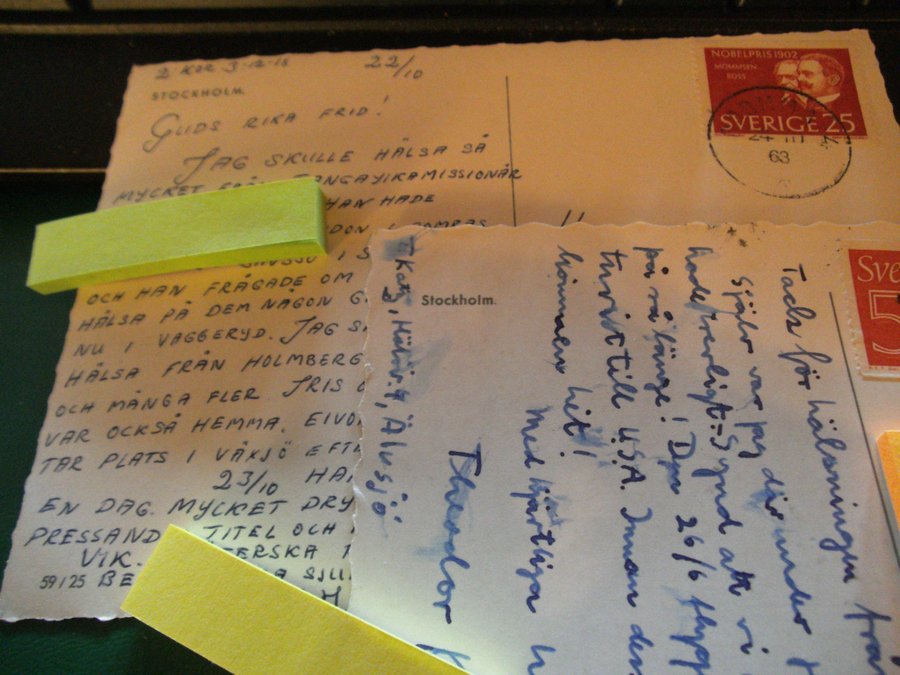 2 KOR 3-12-18 22/10
STOCKHOLM.
GUDS RIKA FRID!
JAG SKULLE HÄLSA SÅ
MYCKET FRÅN TANGAYIKAMISSIONÄR
HAN HADE
OCH HAN FRÅGADE OM
HÄLSA PÅ DEM NÅGON G
NU I VAGGERYD. JAG S
HÄLSA FRÅN HOLMBERG
OCH MÅNGA FLER. IRIS
VAR OCKSÅ HEMMA. EIVO
TAR PLATS I VÄXJÖ EFT
23/10 HA
EN DAG. MYCKET DRY
PRESSAND TITEL OCH
VIK. TERSKA
59125 BE A SJU
NOBELPRIS 1902
MOMMSEN
ROSS
SVERIGE 25
24 III
63
Sve
5
Stockholm.
Tack för hälsningen från
Själv var jag där under
hade trevligt. Synd att vi
på så länge! Den 26/6 flyg
turist till USA. Innan dess
kommen hit!
Med hjärtliga
Theodor
Älvsjö